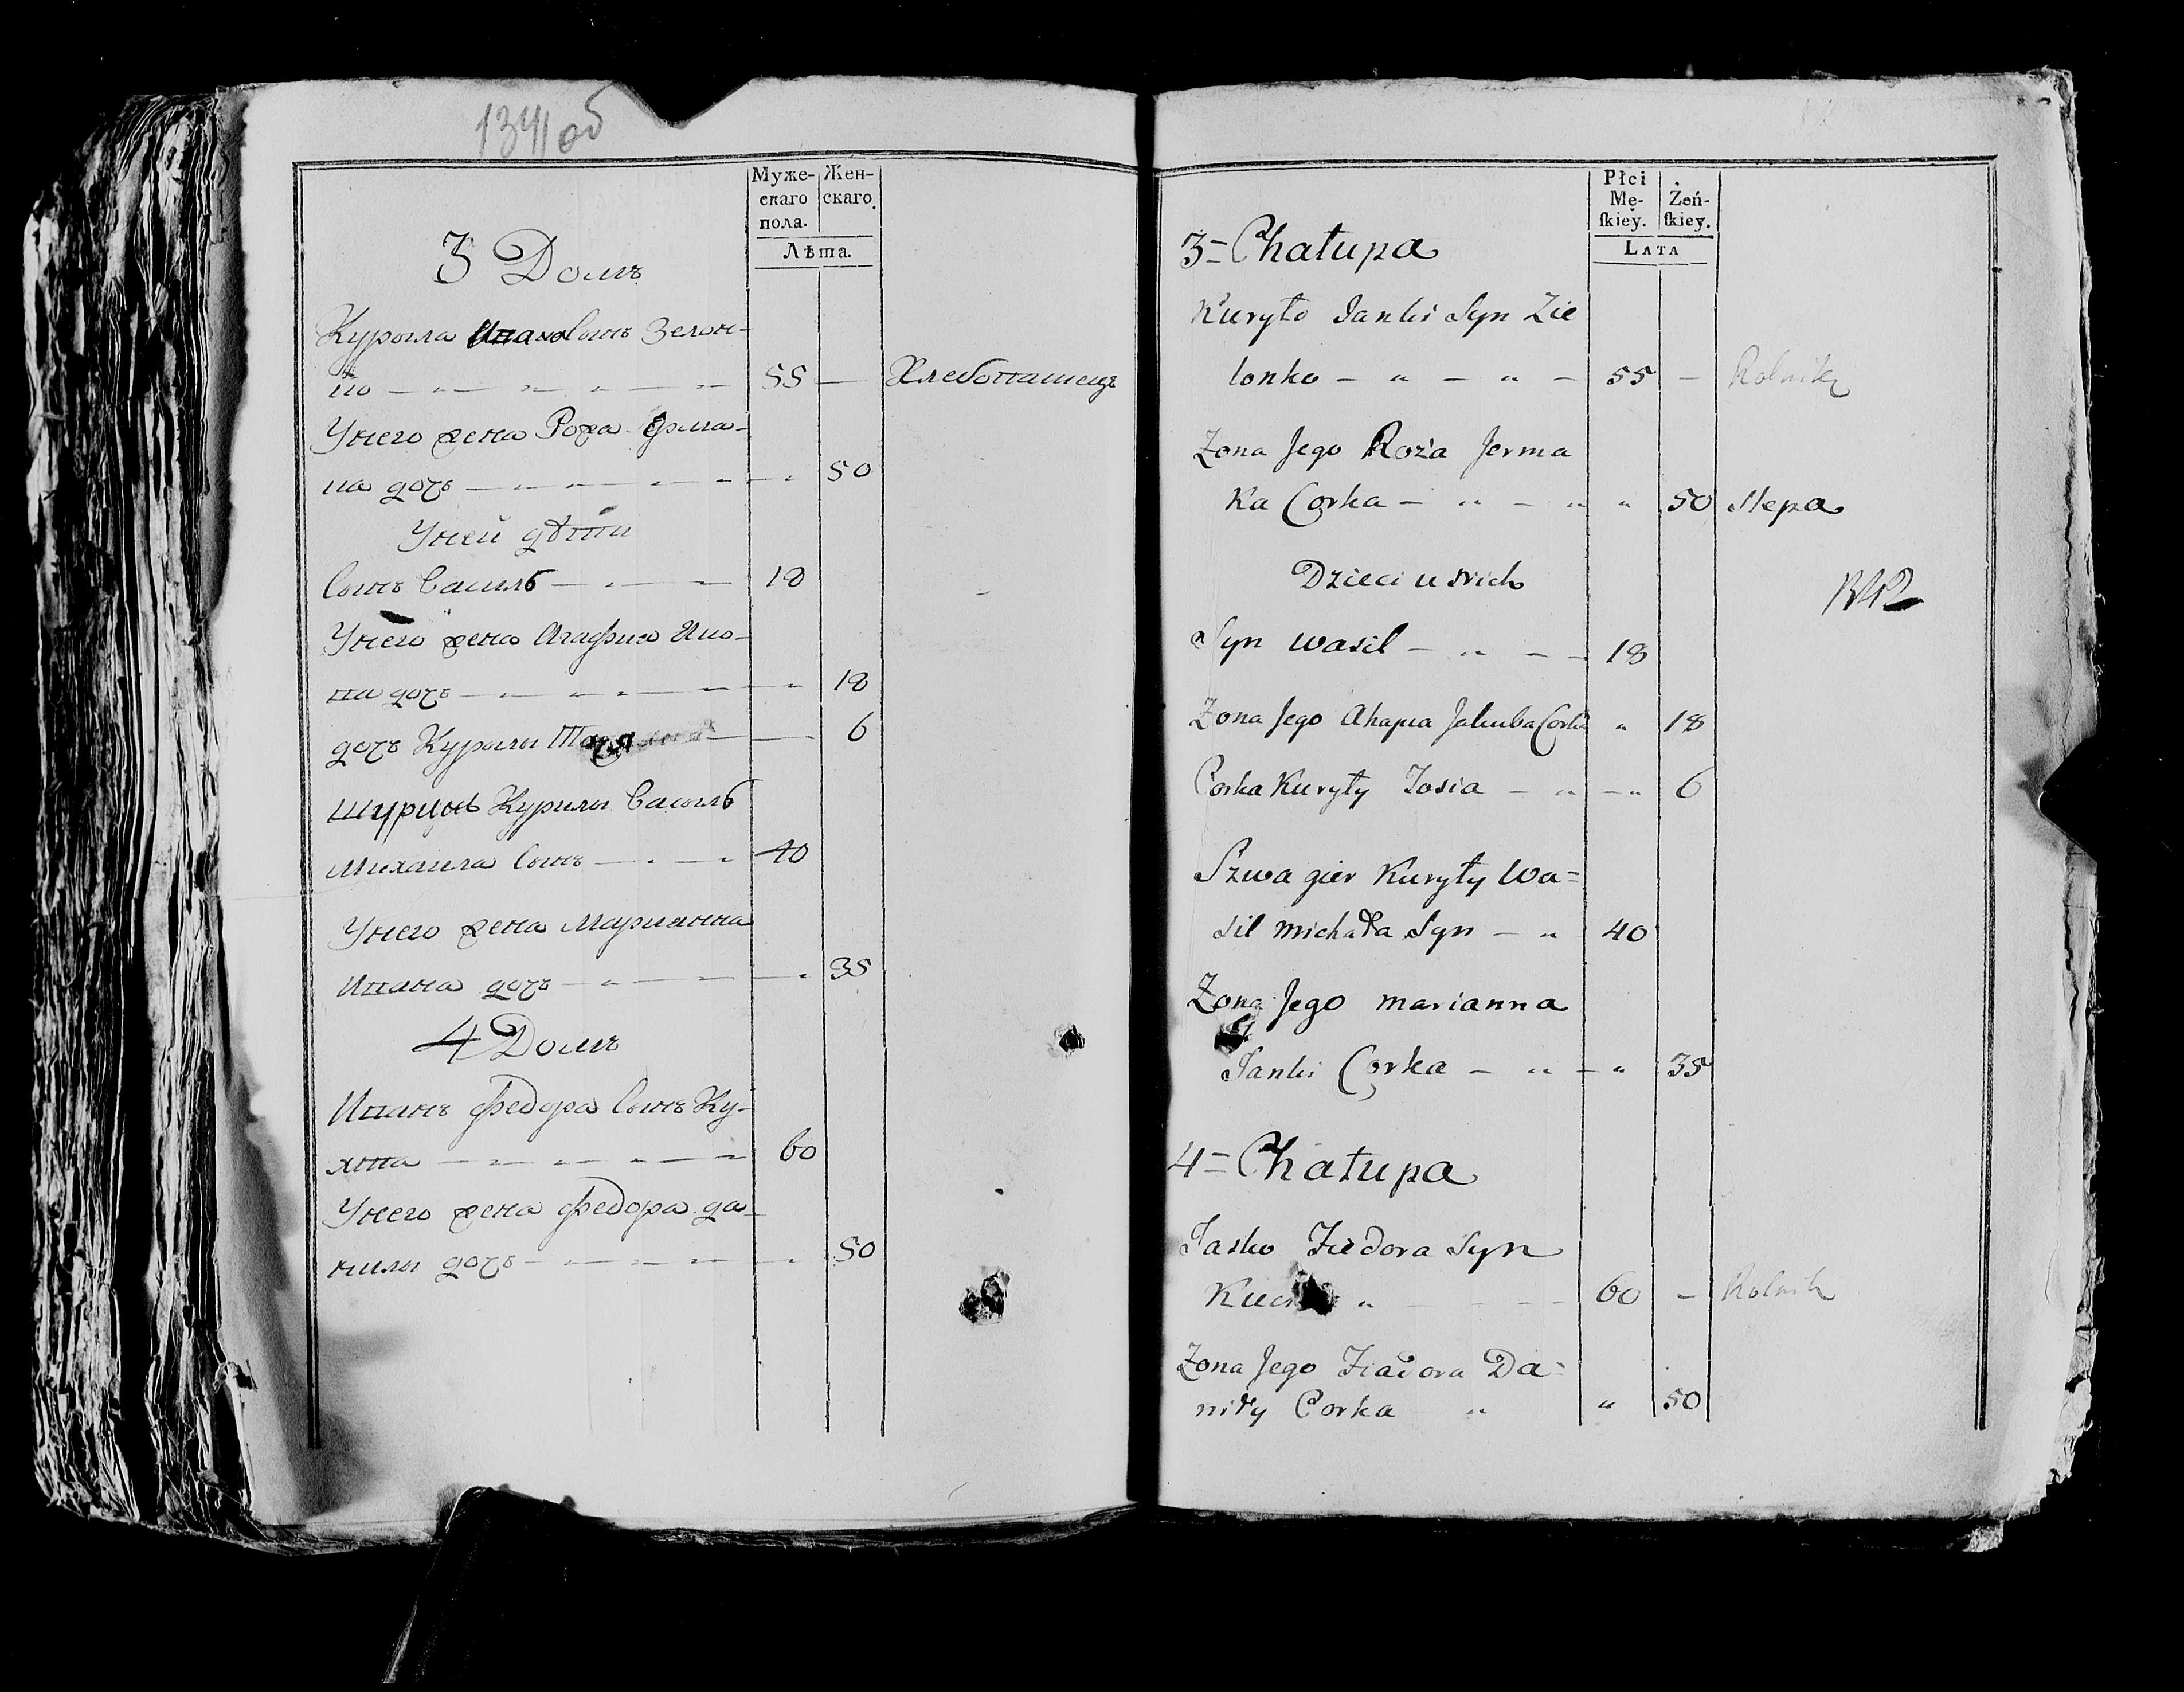 134об
Муже-
скаго
пола.
Жен-
скаго.
Лѣта.
3 Домъ
Курыла Ивана Сынъ Зелон-
ко — 55 — Хлебопашецъ
Унего жена Рожа Ярма-
ка дочь — 50
Уней дѣти
Сынъ Васыль — 18
Унего жена Агафия Яко-
ва дочь — 18
дочь Курылы 6
Шуринъ Курилы Василь
Михаила Сынъ — 40
Унего жена Марианна
Ивана дочь — 35
4 Домъ
Иванъ Федора Сынъ Ку-
хта — 60
Унего жена Федора да-
нилы дочь — 50
Płci
Mę-
ſkiey.
Żeń-
ſkiey.
LATA
3= Chałupa
Kuryło Janki Syn Zie
lonko — " — " — 55 — Rolnik
Zona Jego Roża Jerma
Ka Corka — " — " 50 Slepa
Dzieci u nich
Syn Wasil — " — 18
Zona Jego Ahapia Jakuba Corka " 18
Corka Kuryły Zosia — " — " 6
Szwagier Kuryły Wa=
sil Michała Syn — " 40
Zona Jego Marianna
Janki Corka — " — " 35
4= Chałupa
Jasko Fiedora Syn
60 — Rolnik
Zona Jego Fiadora Da=
niły Corka " " 50